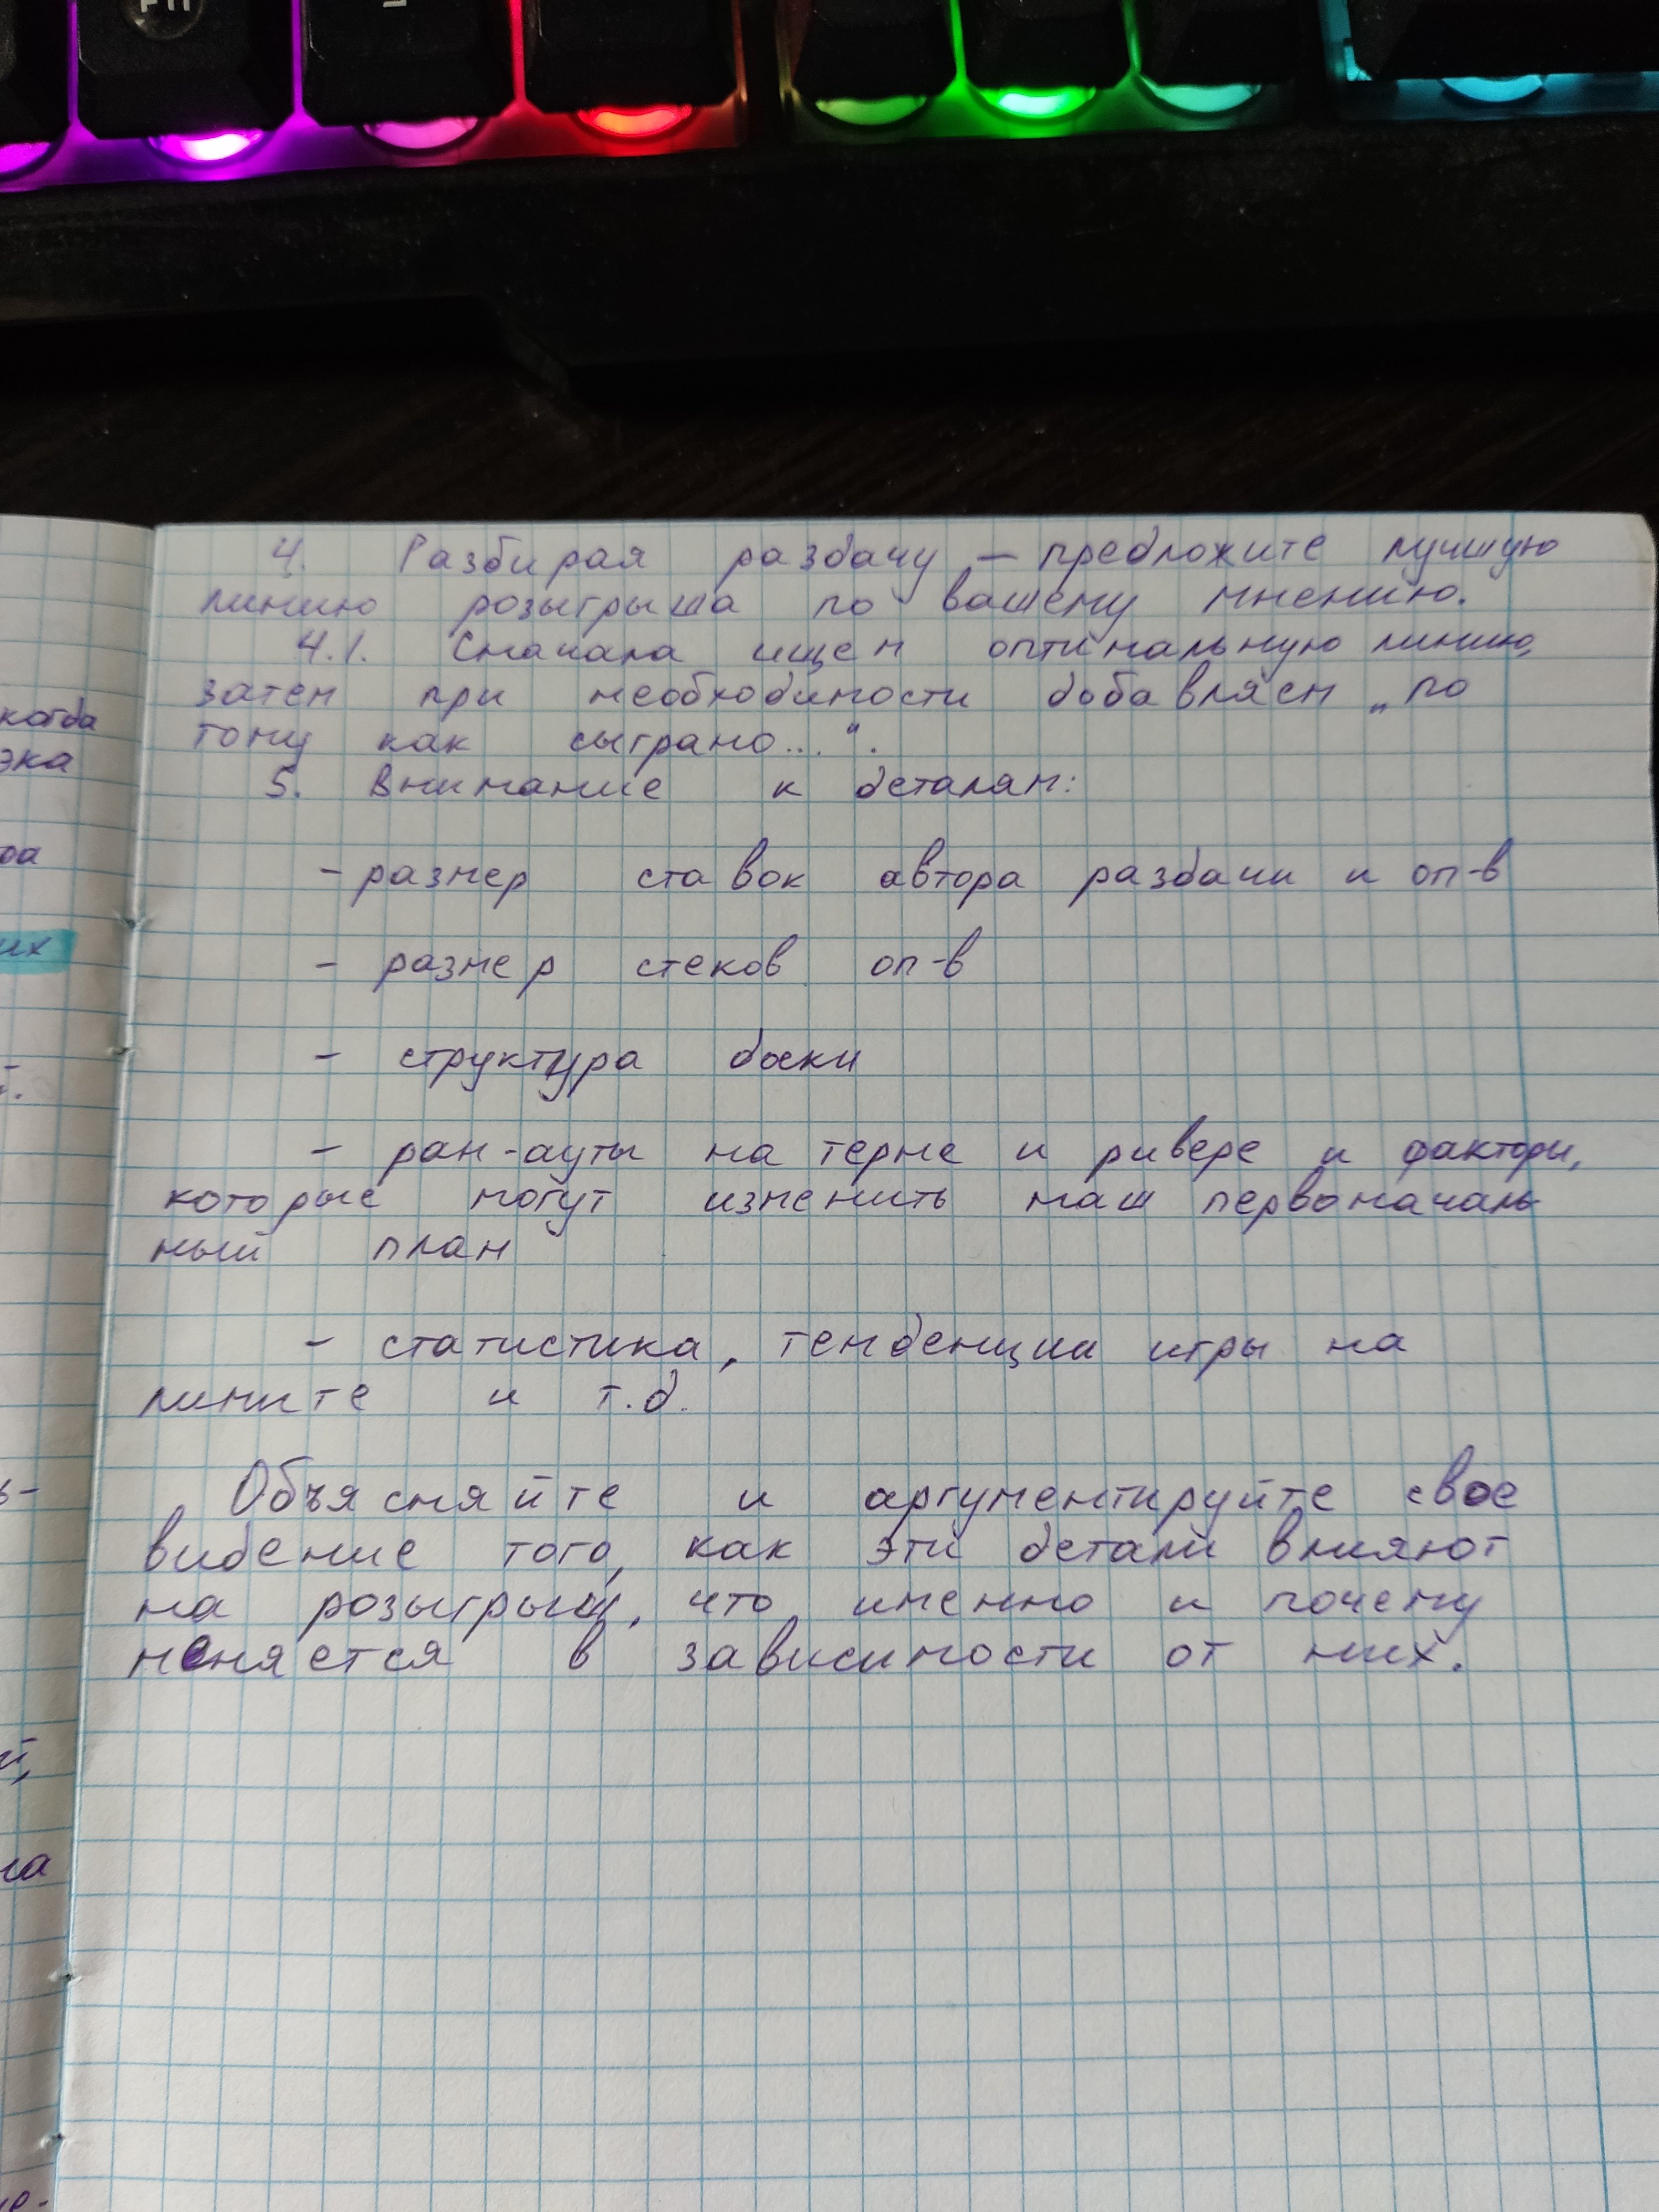 4. Разбирая раздачу – предложите лучшую
линию розыгрыша по вашему мнению.
4.1. Сначала ищем оптимальную линию,
затем при необходимости добавляем „по
тому как сыграно...".
5. Внимание к деталям:
- размер ставок автора раздачи и оп-в
- размер стеков оп-в
- структура доски
- ран-ауты на терне и ривере и факторы,
которые могут изменить наш первоначаль
ный план
- статистика, тенденции игры на
лимите и т.д.
Объясняйте и аргументируйте свое
видение того, как эти детали влияют
на розыгрыш, что именно и почему
меняется в зависимости от них.
когда
эка
их